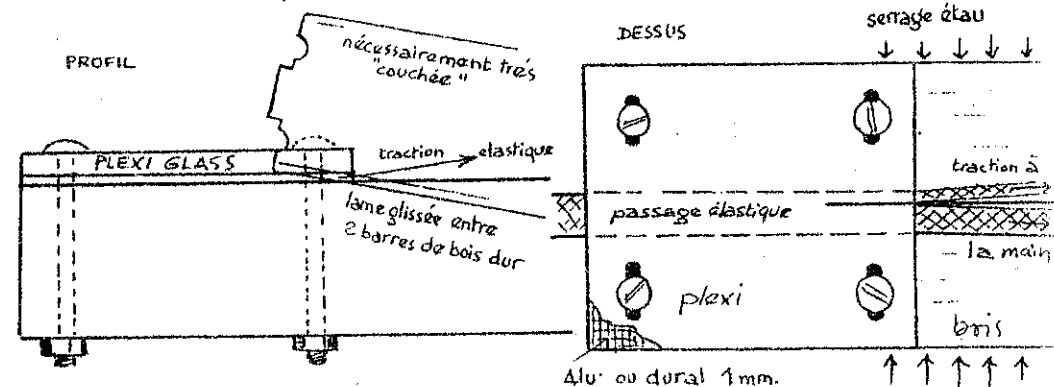 PROFIL
nécessairement très
"couchée"
PLEXI GLASS
traction elastique
lame glissée entre
2 barres de bois dur
DESSUS
serrage étau
traction à
passage élastique
la main
plexi
bris
Alu. ou dural 1mm.